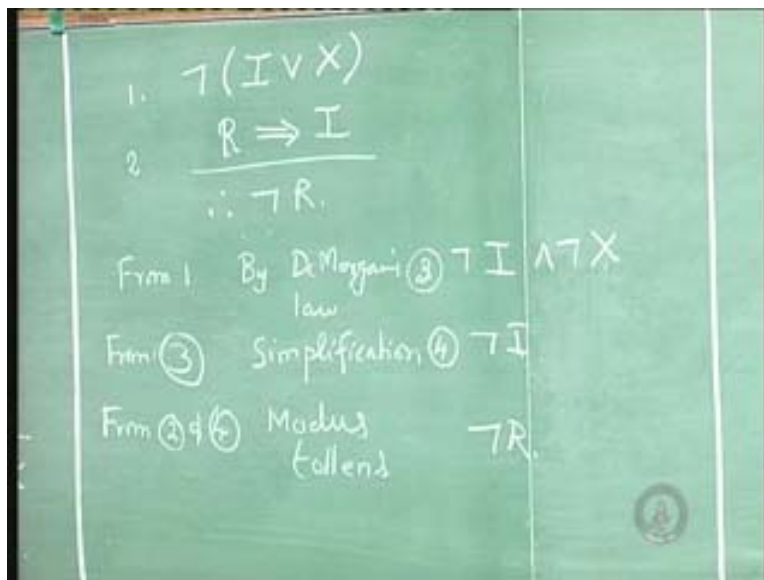 1. ¬(I∨X)
2 R ⇒ I
∴ ¬R.
From 1 By DeMorgan's ③ ¬I ∧¬X
law
From ③ Simplification ④ ¬I
From ② & ④ Modus ¬R.
tollens